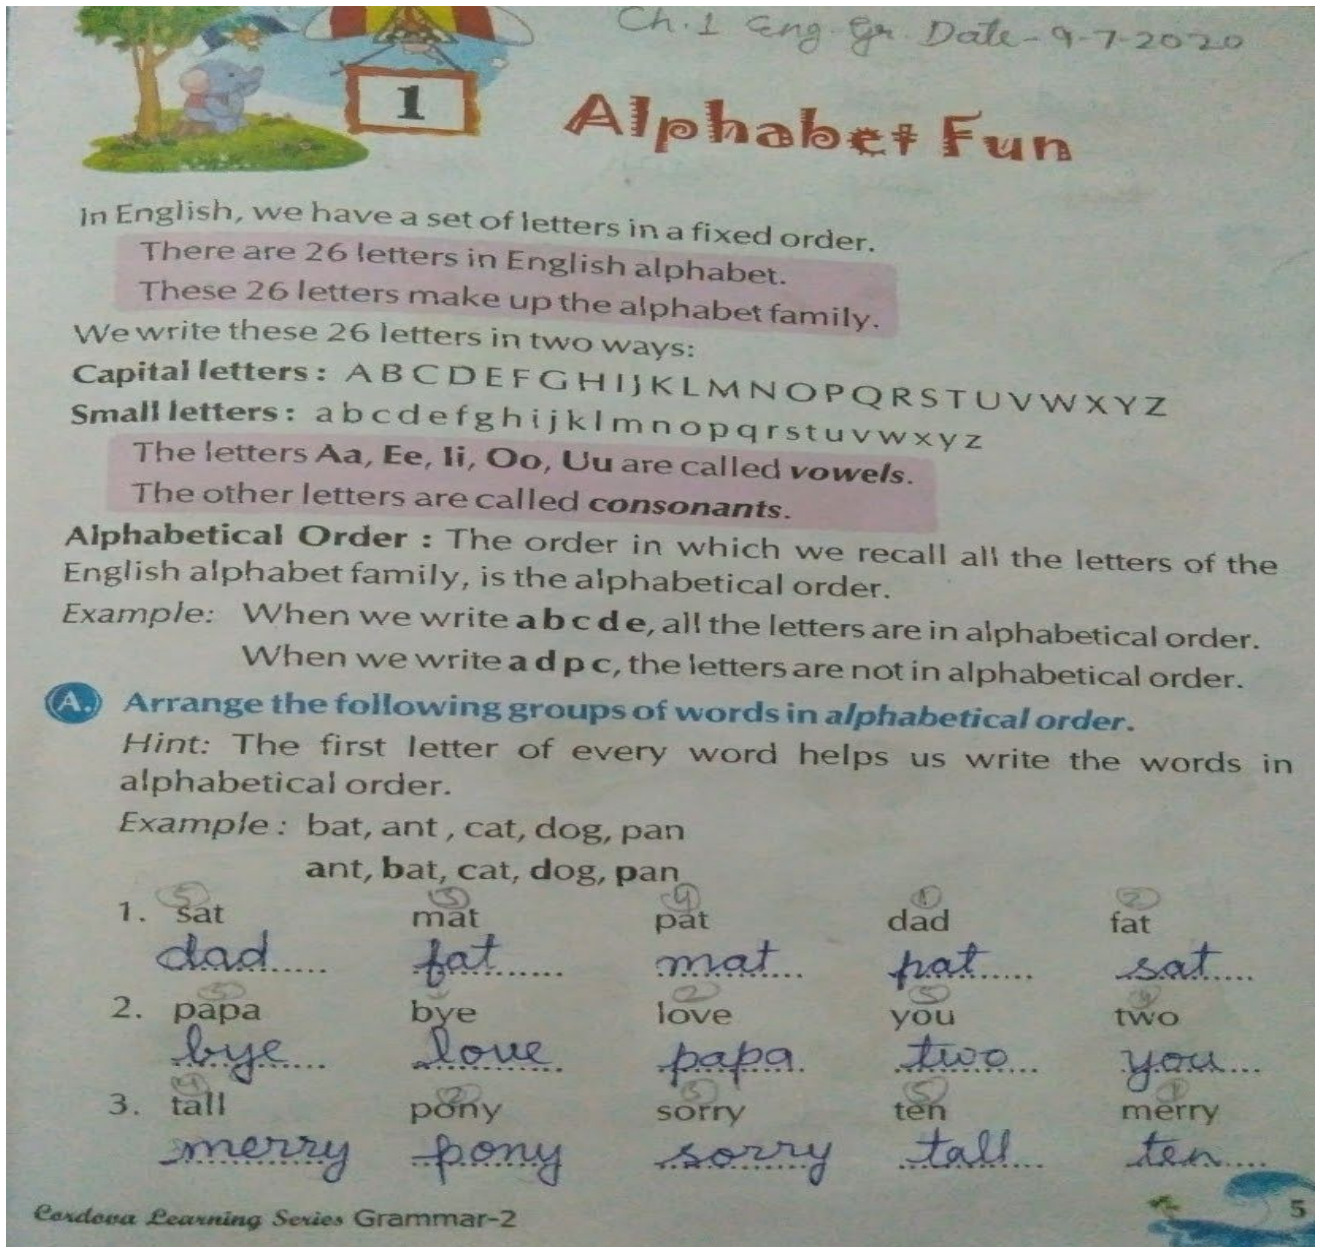 Ch.1 Eng Gr. Date-9-7-2020
1
Alphabet Fun
In English, we have a set of letters in a fixed order.
There are 26 letters in English alphabet.
These 26 letters make up the alphabet family.
We write these 26 letters in two ways:
Capital letters : A B C D E F G H I J K L M N O P Q R S T U V W X Y Z
Small letters : a b c d e f g h i j k l m n o p q r s t u v w x y z
The letters Aa, Ee, Ii, Oo, Uu are called vowels.
The other letters are called consonants.
Alphabetical Order : The order in which we recall all the letters of the
English alphabet family, is the alphabetical order.
Example: When we write a b c d e, all the letters are in alphabetical order.
When we write a d p c, the letters are not in alphabetical order.
A. Arrange the following groups of words in alphabetical order.
Hint: The first letter of every word helps us write the words in
alphabetical order.
Example : bat, ant , cat, dog, pan
ant, bat, cat, dog, pan
5 3 4 1 2
1. sat mat pat dad fat
dad fat mat pat sat
2. papa bye love you two
bye love papa two you
3. tall pony sorry ten merry
merry pony sorry tall ten
Cordova Learning Series Grammar-2
5